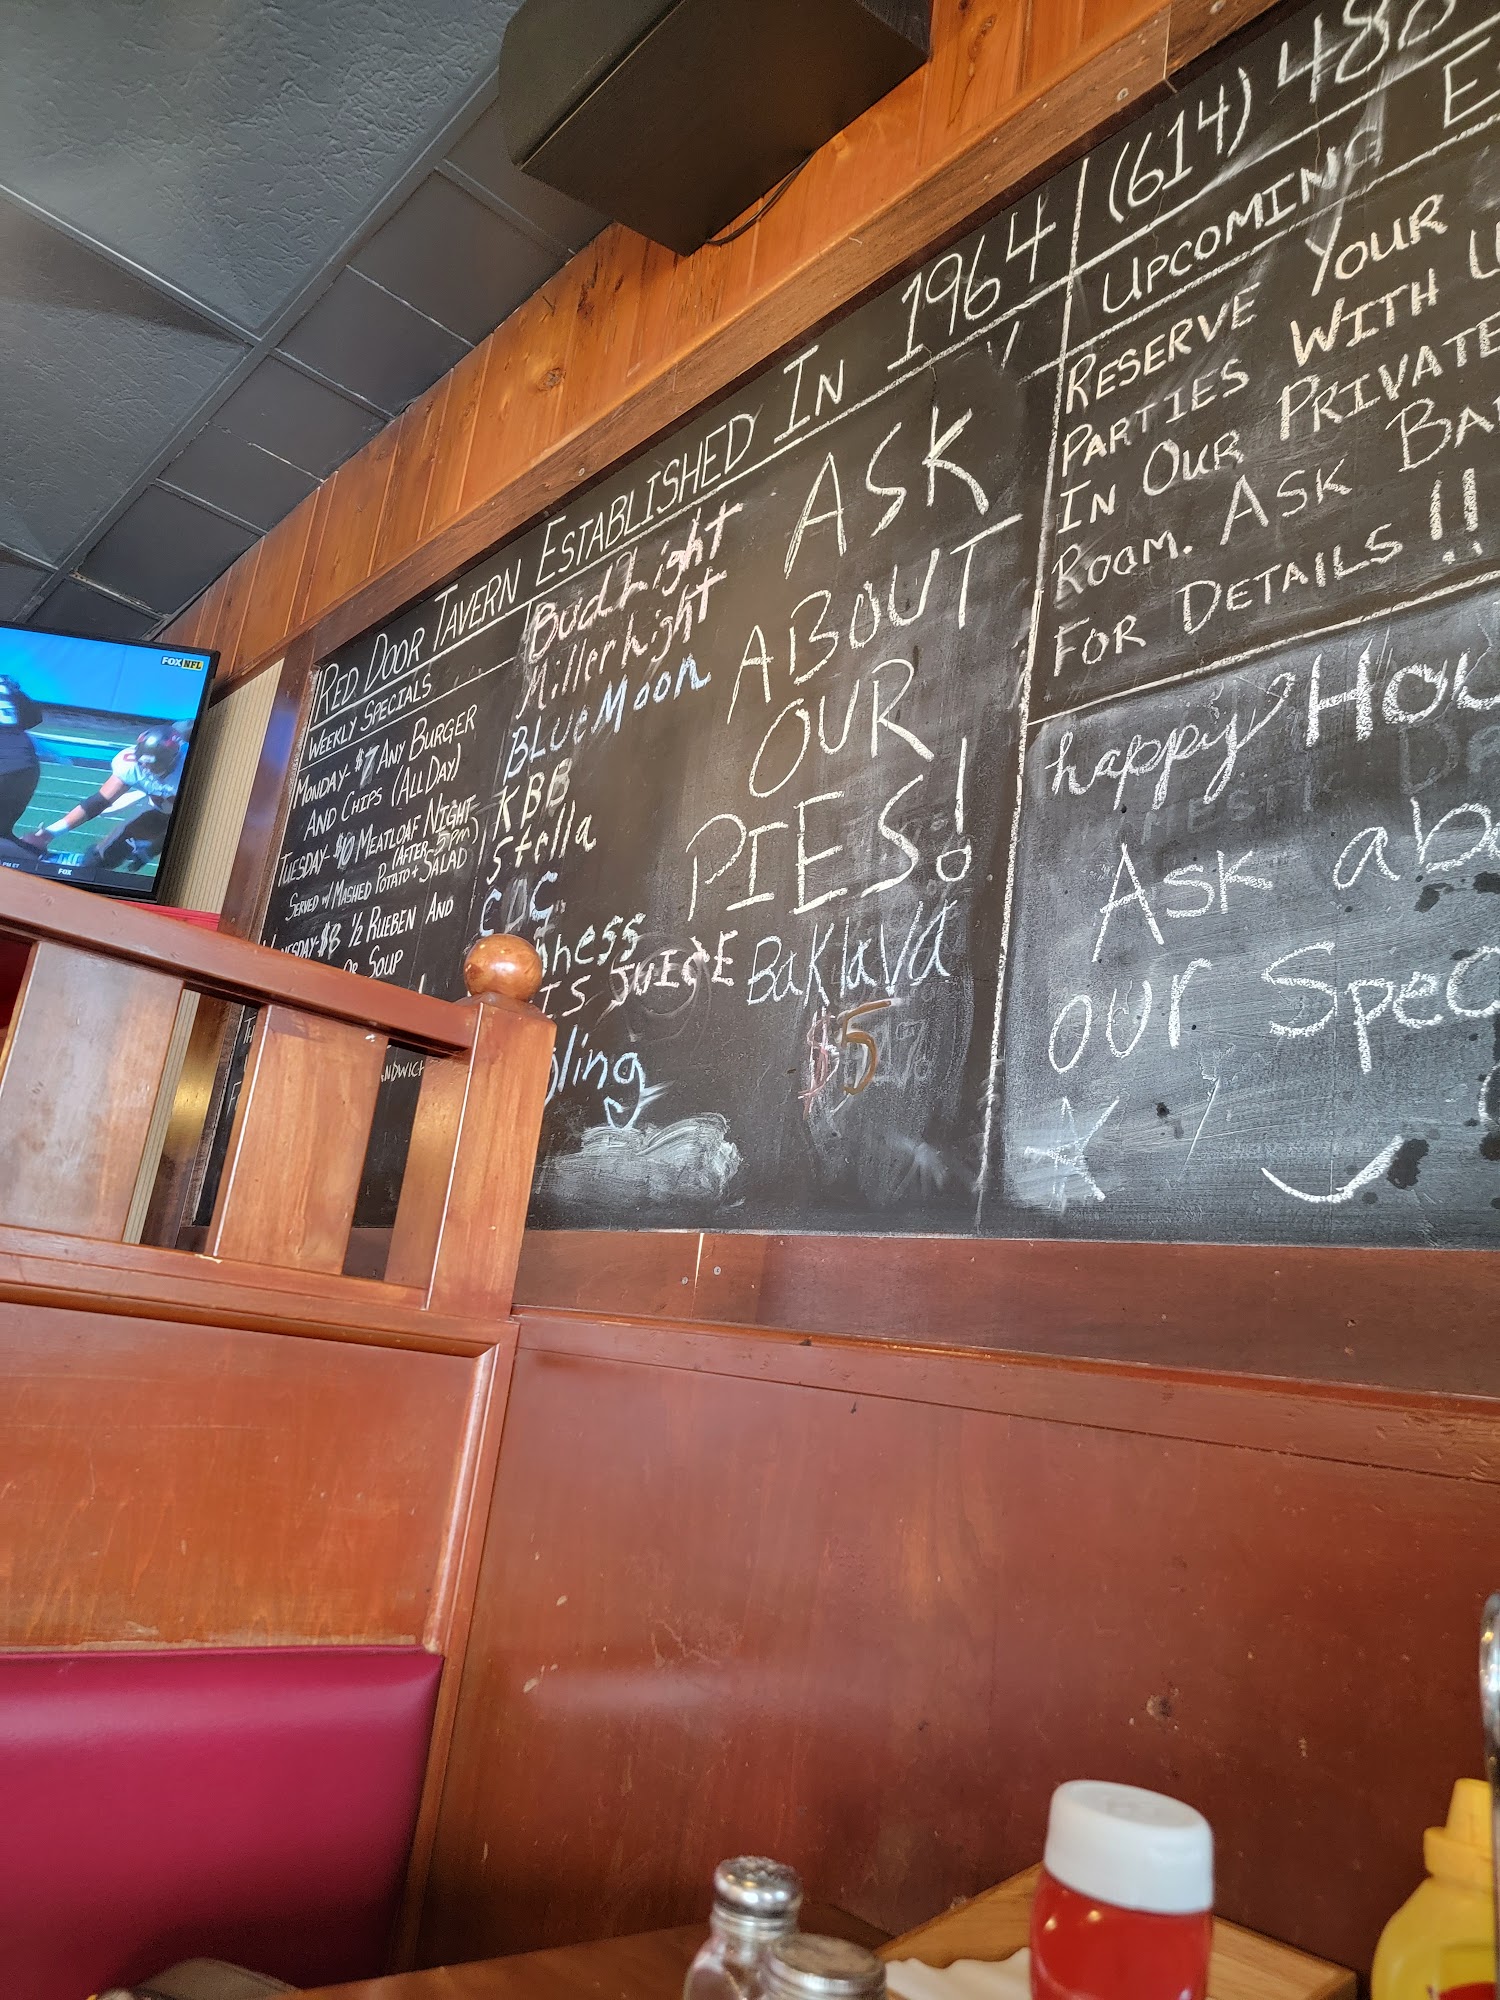 RED DOOR TAVERN ESTABLISHED IN 1964
(614) 488
WEEKLY SPECIALS
MONDAY- $7 ANY BURGER
AND CHIPS (ALL DAY)
TUESDAY- $10 MEATLOAF NIGHT
(AFTER 5PM)
SERVED W/ MASHED POTATO + SALAD
$8 1/2 RUEBEN AND
OR SOUP
Bud Light
Miller Light
BLUE MOON
KBB
Stella
CBC
JUICE
ASK
ABOUT
OUR
PIES!
BaKlaVa
$5
UPCOMING
RESERVE YOUR
PARTIES WITH
IN OUR PRIVATE
ROOM. ASK
FOR DETAILS!!
happy
ASK
our
FOX NFL
FOX